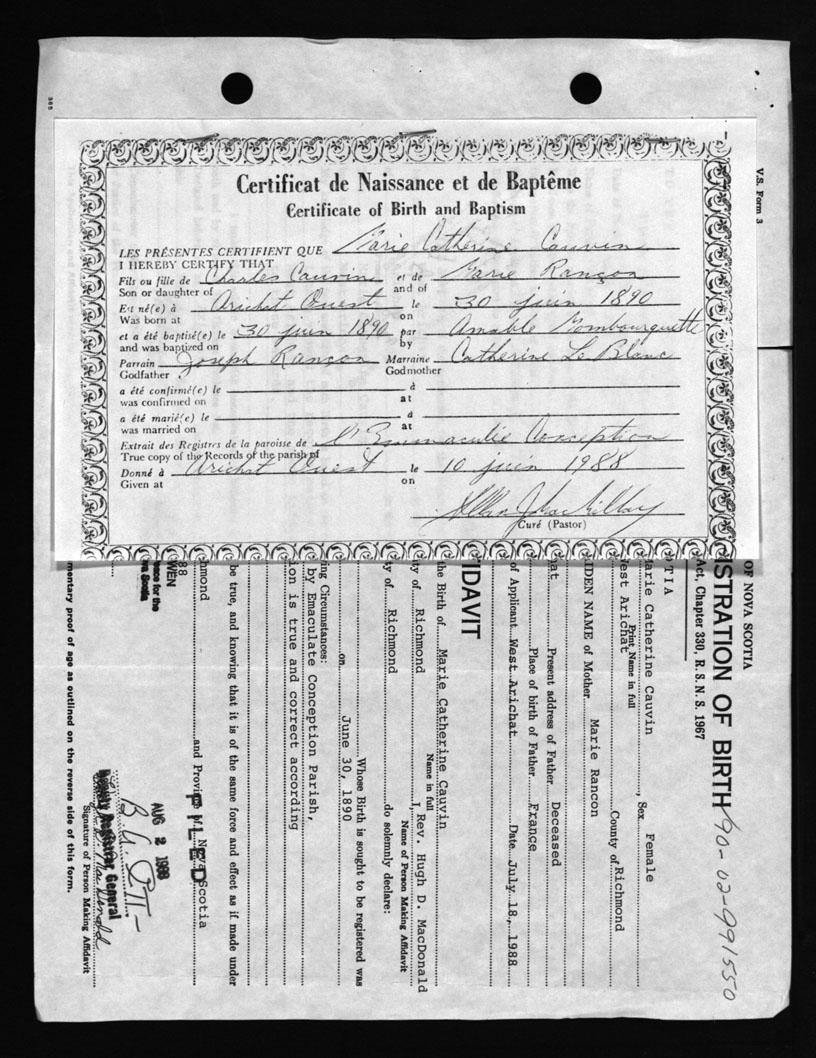 365
V.S. Form 3
Certificat de Naissance et de Baptême
Certificate of Birth and Baptism
LES PRÉSENTES CERTIFIENT QUE Marie Catherine Cauvin
I HEREBY CERTIFY THAT
Fils ou fille de Charles Cauvin et de Marie Rançon
Son or daughter of and of
Est né(e) à Arichat Ouest le 30 juin 1890
Was born at on
et a été baptisé(e) le 30 juin 1890 par Amable Mombourquette
and was baptized on by
Parrain Joseph Rançon Marraine Catherine Le Blanc
Godfather Godmother
a été confirmé(e) le à
was confirmed on at
a été marié(e) le à
was married on at
Extrait des Registres de la paroisse de l'Immaculée Conception
True copy of the Records of the parish of
Donné à Arichat Ouest le 10 juin 1988
Given at on
Allan J MacMillan
Curé (Pastor)
OF NOVA SCOTIA
ISTRATION OF BIRTH '90-02-991550
Act, Chapter 330, R.S.N.S. 1967
TIA
arie Catherine Cauvin, Sex Female
Print Name in full
est Arichat County of Richmond
IDEN NAME of Mother Marie Rancon
hat Present address of Father Deceased
Place of birth of Father France
of Applicant West Arichat Date July 18, 1988
IDAVIT
the Birth of Marie Catherine Cauvin
Name in full
ty of Richmond, I, Rev. Hugh D. MacDonald
Name of Person Making Affidavit
ty of Richmond do solemnly declare:
Whose Birth is sought to be registered was
on June 30, 1890
ing Circumstances:
by Emaculate Conception Parish,
ion is true and correct according
be true, and knowing that it is of the same force and effect as if made under
hmond and Province of Nova Scotia
88
FILED
WEN
eace for the
va Scotia
AUG 2 1988
Deputy Registrar General
Signature of Person Making Affidavit
mentary proof of age as outlined on the reverse side of this form.